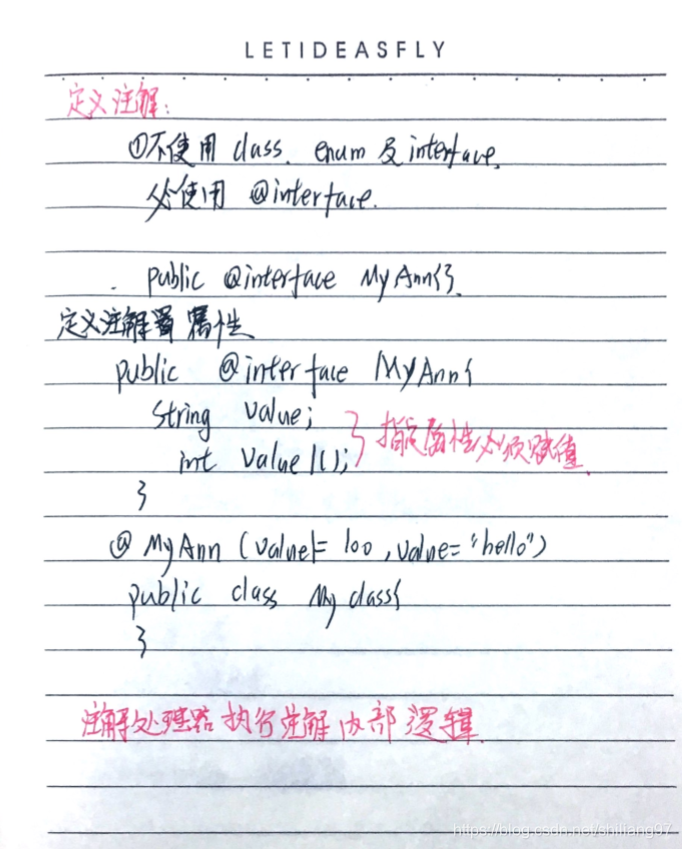 LETIDEASFLY
定义注解:
①不使用 class、enum 及 interface,
必使用 @interface.
public @interface MyAnn{}.
定义注解 属性
public @interface MyAnn{
String value;
int value1(); } 指定属性必须赋值
}
@ MyAnn (value1= 100 ,value="hello")
public class My class{
}
注解处理器 执行注解 内部 逻辑
https://blog.csdn.net/shiliang97